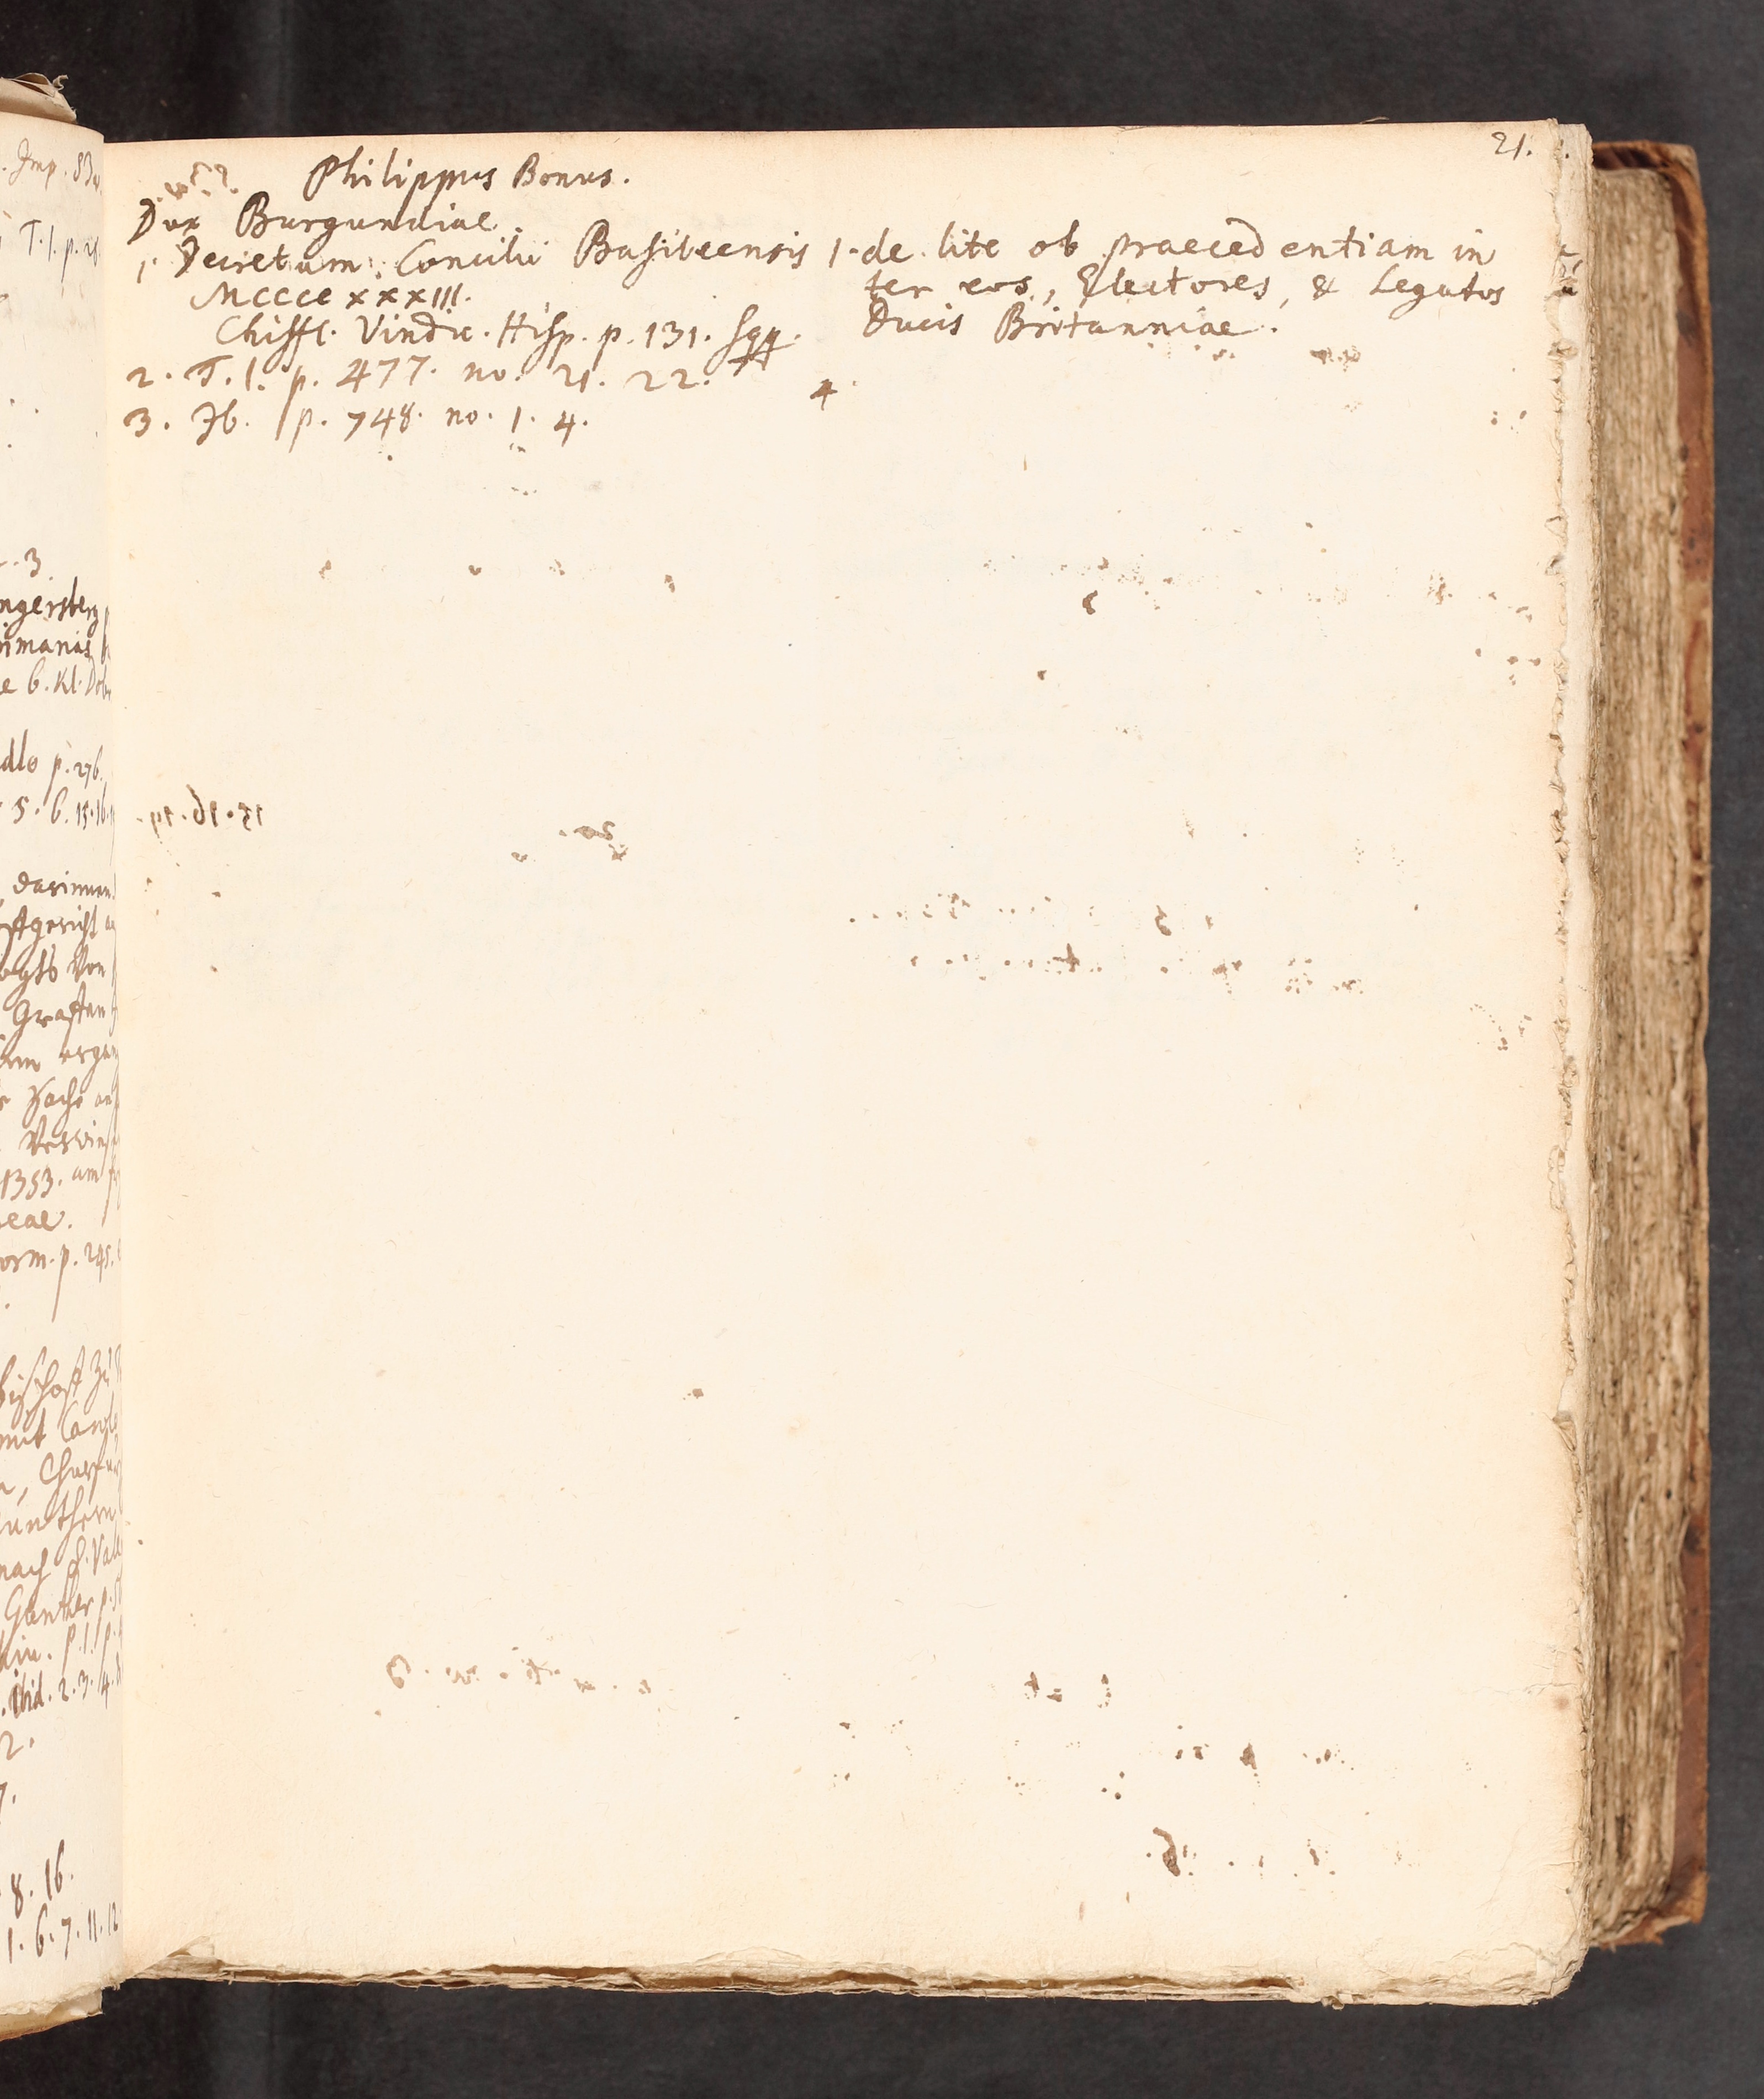 21.
Philippus Bonus.
Dux Burgundiae.
1. Decretum Concilii Basileensis
MCCCCXXXIII.
Chiffl. Vindic. Hisp. p. 131. sqq.
2. T. 1. p. 477. no. 21. 22.
3. Ib. p. 748. no. 1. 4.
1. de lite ob praecedentiam in
ter eos, Electores, & Legatos
Ducis Britanniae.
4
. Imp.
T. 1. p.
. 3
ngersberg
imanas
e b. Kl.
dlo p. 276.
5. 6. 15. 16.
darinnen
Von
Grafen
1353. am
eae.
orm. p. 245.
mit
nach
Günther p.
p. 1. p.
. ibid. 2. 3. 4.
2.
7.
8. 16.
1. 6. 7. 11. 12